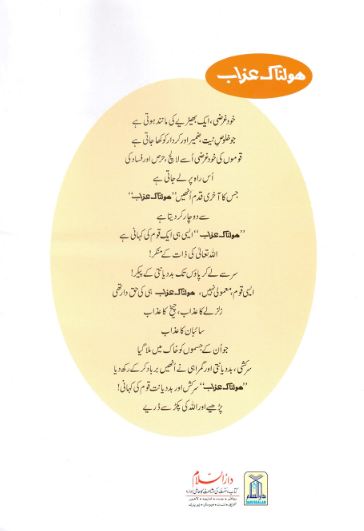 ھولناک عذاب
خود غرضی، ایک بھیڑیے کی مانند ہوتی ہے
جو خلوصِ نیت، ضمیر اور کردار کو کھا جاتی ہے
قوموں کی خود غرضی اُسے لالچ، حرص اور فساد کی
اُس راہ پر لے جاتی ہے
جس کا آخری قدم انھیں "ھولناک عذاب"
سے دوچار کر دیتا ہے
"ھولناک عذاب" ایسی ہی ایک قوم کی کہانی ہے
اللہ تعالیٰ کی ذات کے منکر!
سر سے لے کر پاؤں تک بددیانتی کے پیکر!
ایسی قوم، معمولی نہیں، ھولناک عذاب ہی کی حق دار تھی
زلزلے کا عذاب، چیخ کا عذاب
سائبان کا عذاب
جو اُن کے جسموں کو خاک میں ملا گیا
سرکشی، بددیانتی اور گمراہی نے انھیں برباد کر کے رکھ دیا
"ھولناک عذاب" سرکش اور بددیانت قوم کی کہانی!
پڑھیے اور اللہ کی پکڑ سے ڈریے
دارالسلام
کتاب و سنت کی اشاعت کا عالمی ادارہ
DARUSSALAM